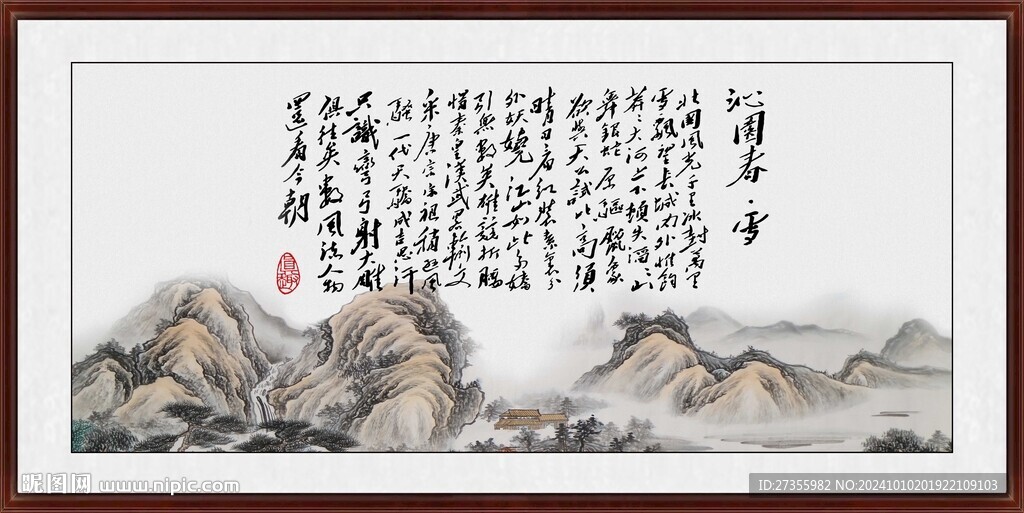 沁園春·雪
北國風光千里冰封萬里
雪飄望長城內外惟餘
莽〻大河上下頓失滔〻山
舞銀蛇原驅蠟象
欲與天公試比高須
晴日看紅裝素裹分
外妖嬈江山如此多嬌
引無數英雄競折腰
惜秦皇漢武略輸文
采唐宗宋祖稍遜風
騷一代天驕成吉思汗
只識彎弓射大雕
俱往矣數風流人物
還看今朝
昵图网 www.nipic.com
ID:27355982 NO:20241010201922109103